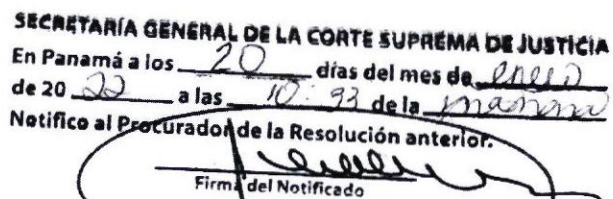 SECRETARÍA GENERAL DE LA CORTE SUPREMA DE JUSTICIA
En Panamá a los 20 días del mes de enero
de 20 22 a las 10:93 de la mañana
Notifico al Procurador de la Resolución anterior.
Firma del Notificado